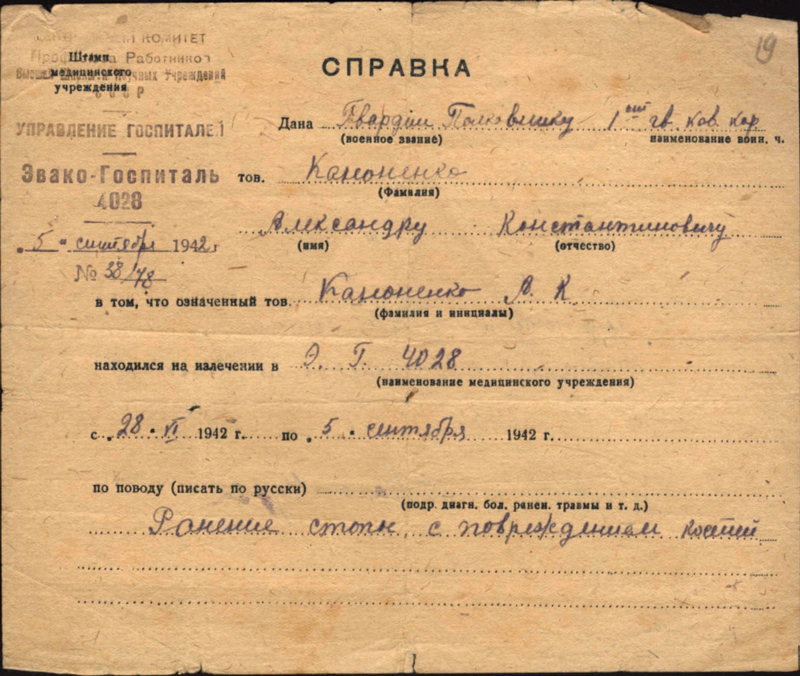 КОМИТЕТ
Работников
Штамп
медицинского
учреждения
Учреждений
СССР
УПРАВЛЕНИЕ ГОСПИТАЛЕЙ
Эвако-Госпиталь
4028
5 " сентября 1942 г
№ 38/78
19
СПРАВКА
Дана Гвардии Полковнику 1ой гв. кав. кор
(военное звание) наименование воин. ч.
тов. Каноненко
(Фамилия)
Александру Константиновичу
(имя) (отчество)
в том, что означенный тов. Каноненко А. К
(фамилия и инициалы)
находился на излечении в Э. Г. 4028
(наименование медицинского учреждения)
с "28" VI 1942 г. по "5" сентября 1942 г.
по поводу (писать по русски)
(подр. диагн. бол. ранен. травмы и т. д.)
Ранение стопы с повреждением костей